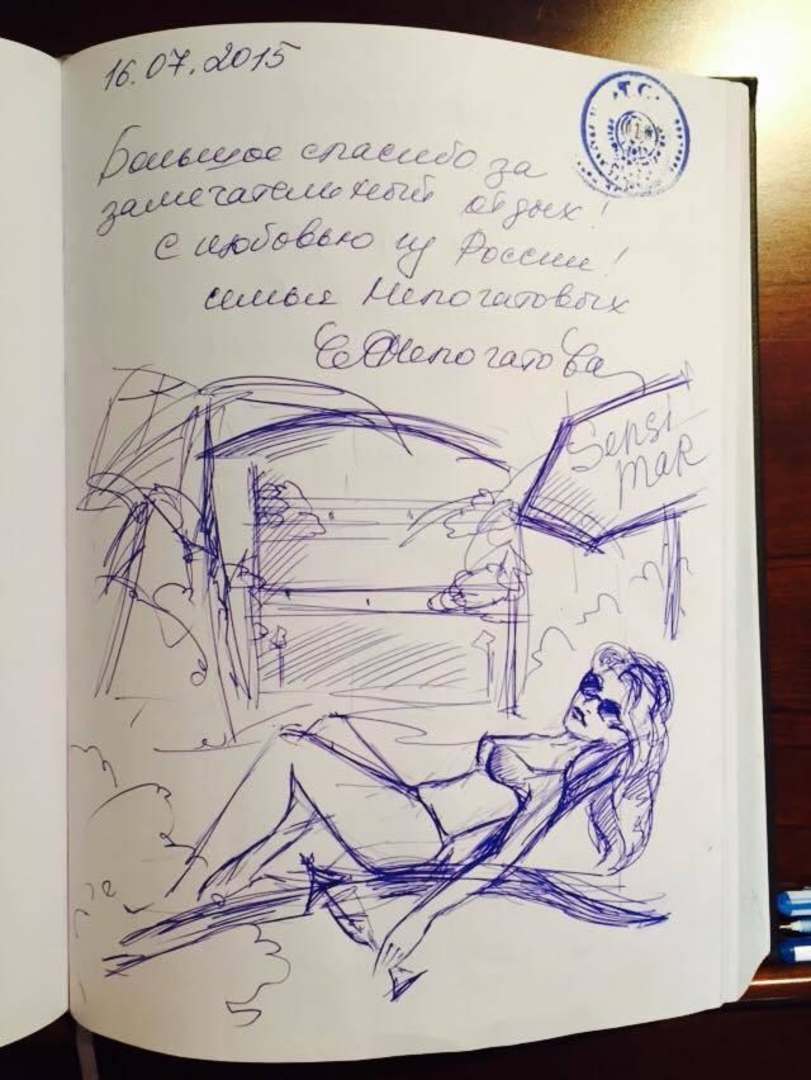 16.07.2015
Большое спасибо за
замечательный отдых!
С любовью из России!
семья Непогатовых
Непогатова
Sensi
mar